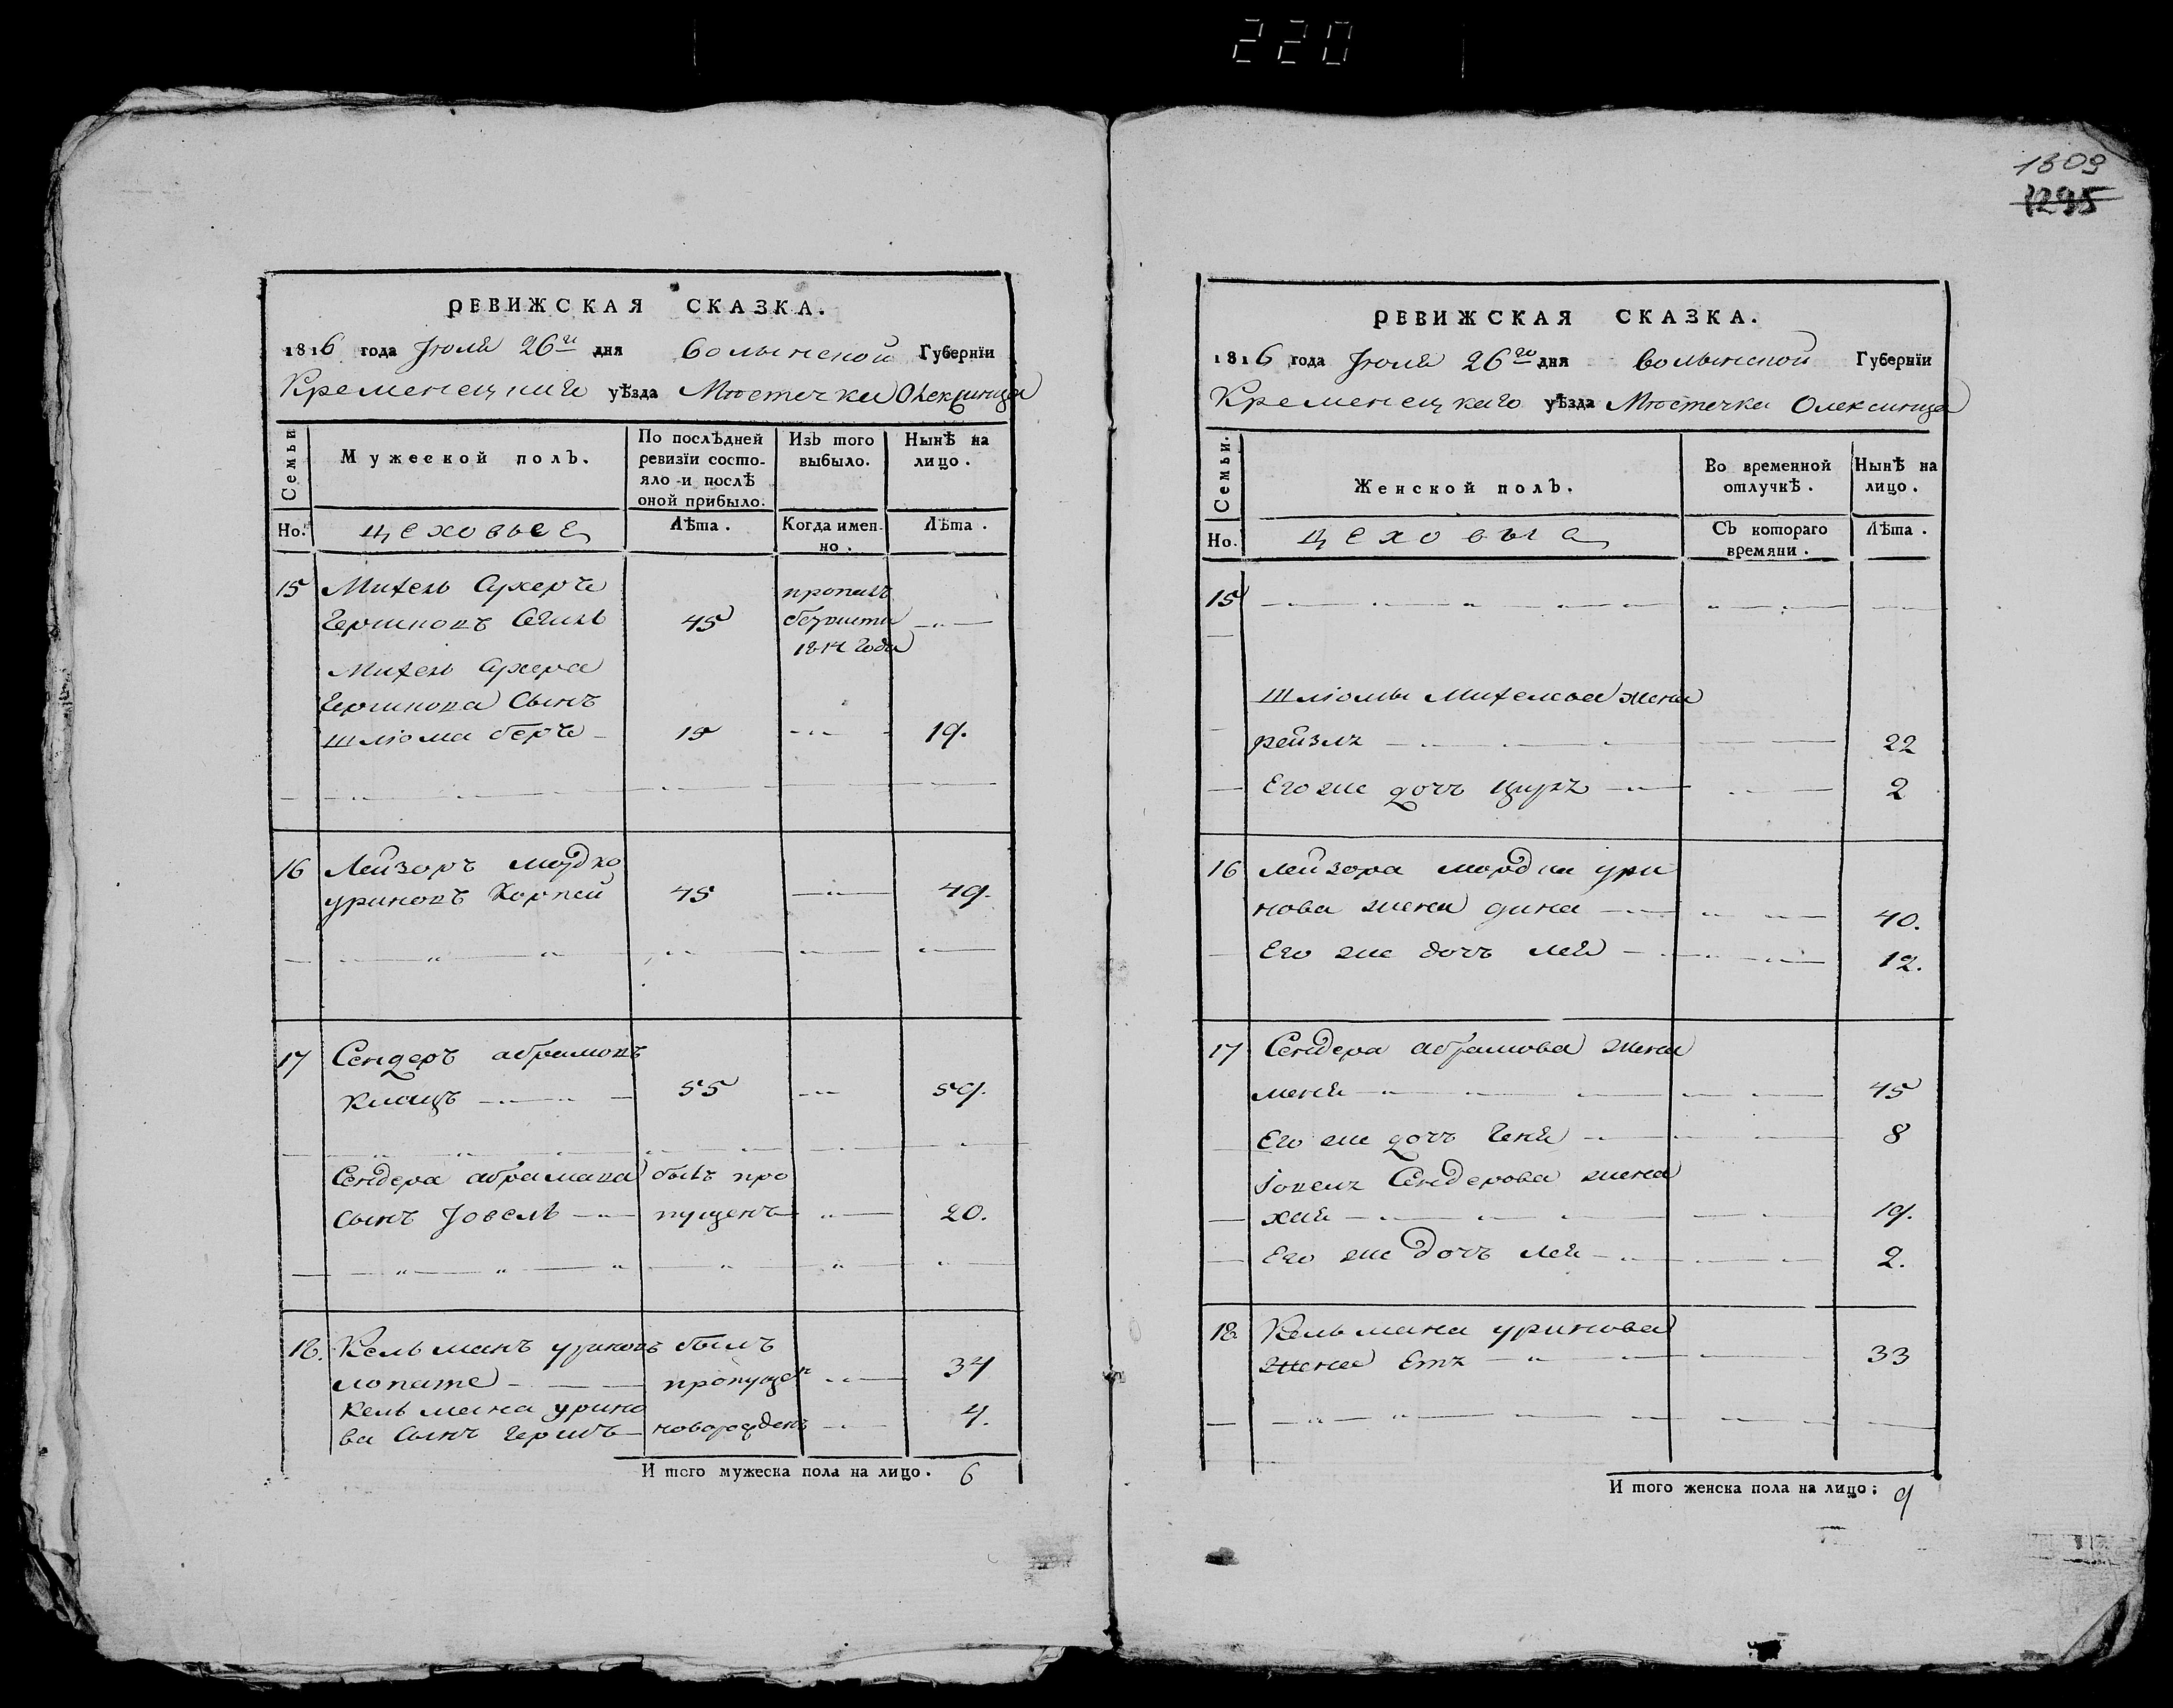 220
1309
1295
РЕВИЖСКАЯ СКАЗКА.
1816 года Іюля 26го дня Волынской Губернїи
Кременецкаго уѣзда Мѣстечка Олексинца
Семьи
Мужеской полъ.
По послѣдней ревизїи состо-
яло и послѣ
оной прибыло.
Изъ того
выбыло.
Нынѣ на
лицо.
Но.
цеховые
Лѣта.
Когда имен-
но.
Лѣта.
15 Михель Сухеръ пропалъ
Гершковъ 45 безвѣсти
Михель Сухера 1814 года
Гершкова Сынъ
Шліома беръ 15 19.
16 Лейзоръ мордко
уриновъ Корпей 45 49.
17 Сендеръ абрамовъ
55 59.
Сендера абрамова былъ про
сынъ Іовель пущенъ 20.
18. Кельманъ уриновъ былъ
лопате пропущен 37
Кельмана урино
ва Сынъ Гершъ новорожденъ 4.
И того мужеска пола на лицо. 6
РЕВИЖСКАЯ СКАЗКА.
1816 года Іюля 26го дня Волынской Губернїи
Кременецкаго уѣзда Мѣстечка Олексинца
Семьи.
Женской полъ.
Во временной
отлучкѣ.
Нынѣ на
лицо.
Но.
цеховые
Съ котораго
времяни.
Лѣта.
15
Шліомы Михелева жена
рейзля 22
Его же дочь цура 2
16 Лейзора мордки ури
нова жена дина 40.
Его же дочь лея 12.
17 Сендера абрамова жена
меня 45
Его же дочь Геня 8
Іовеля Сендерова жена
хая 19.
Его же дочь лея 2.
18 Кельмана уринова
жена Етя 33
И того женска пола на лицо: 9